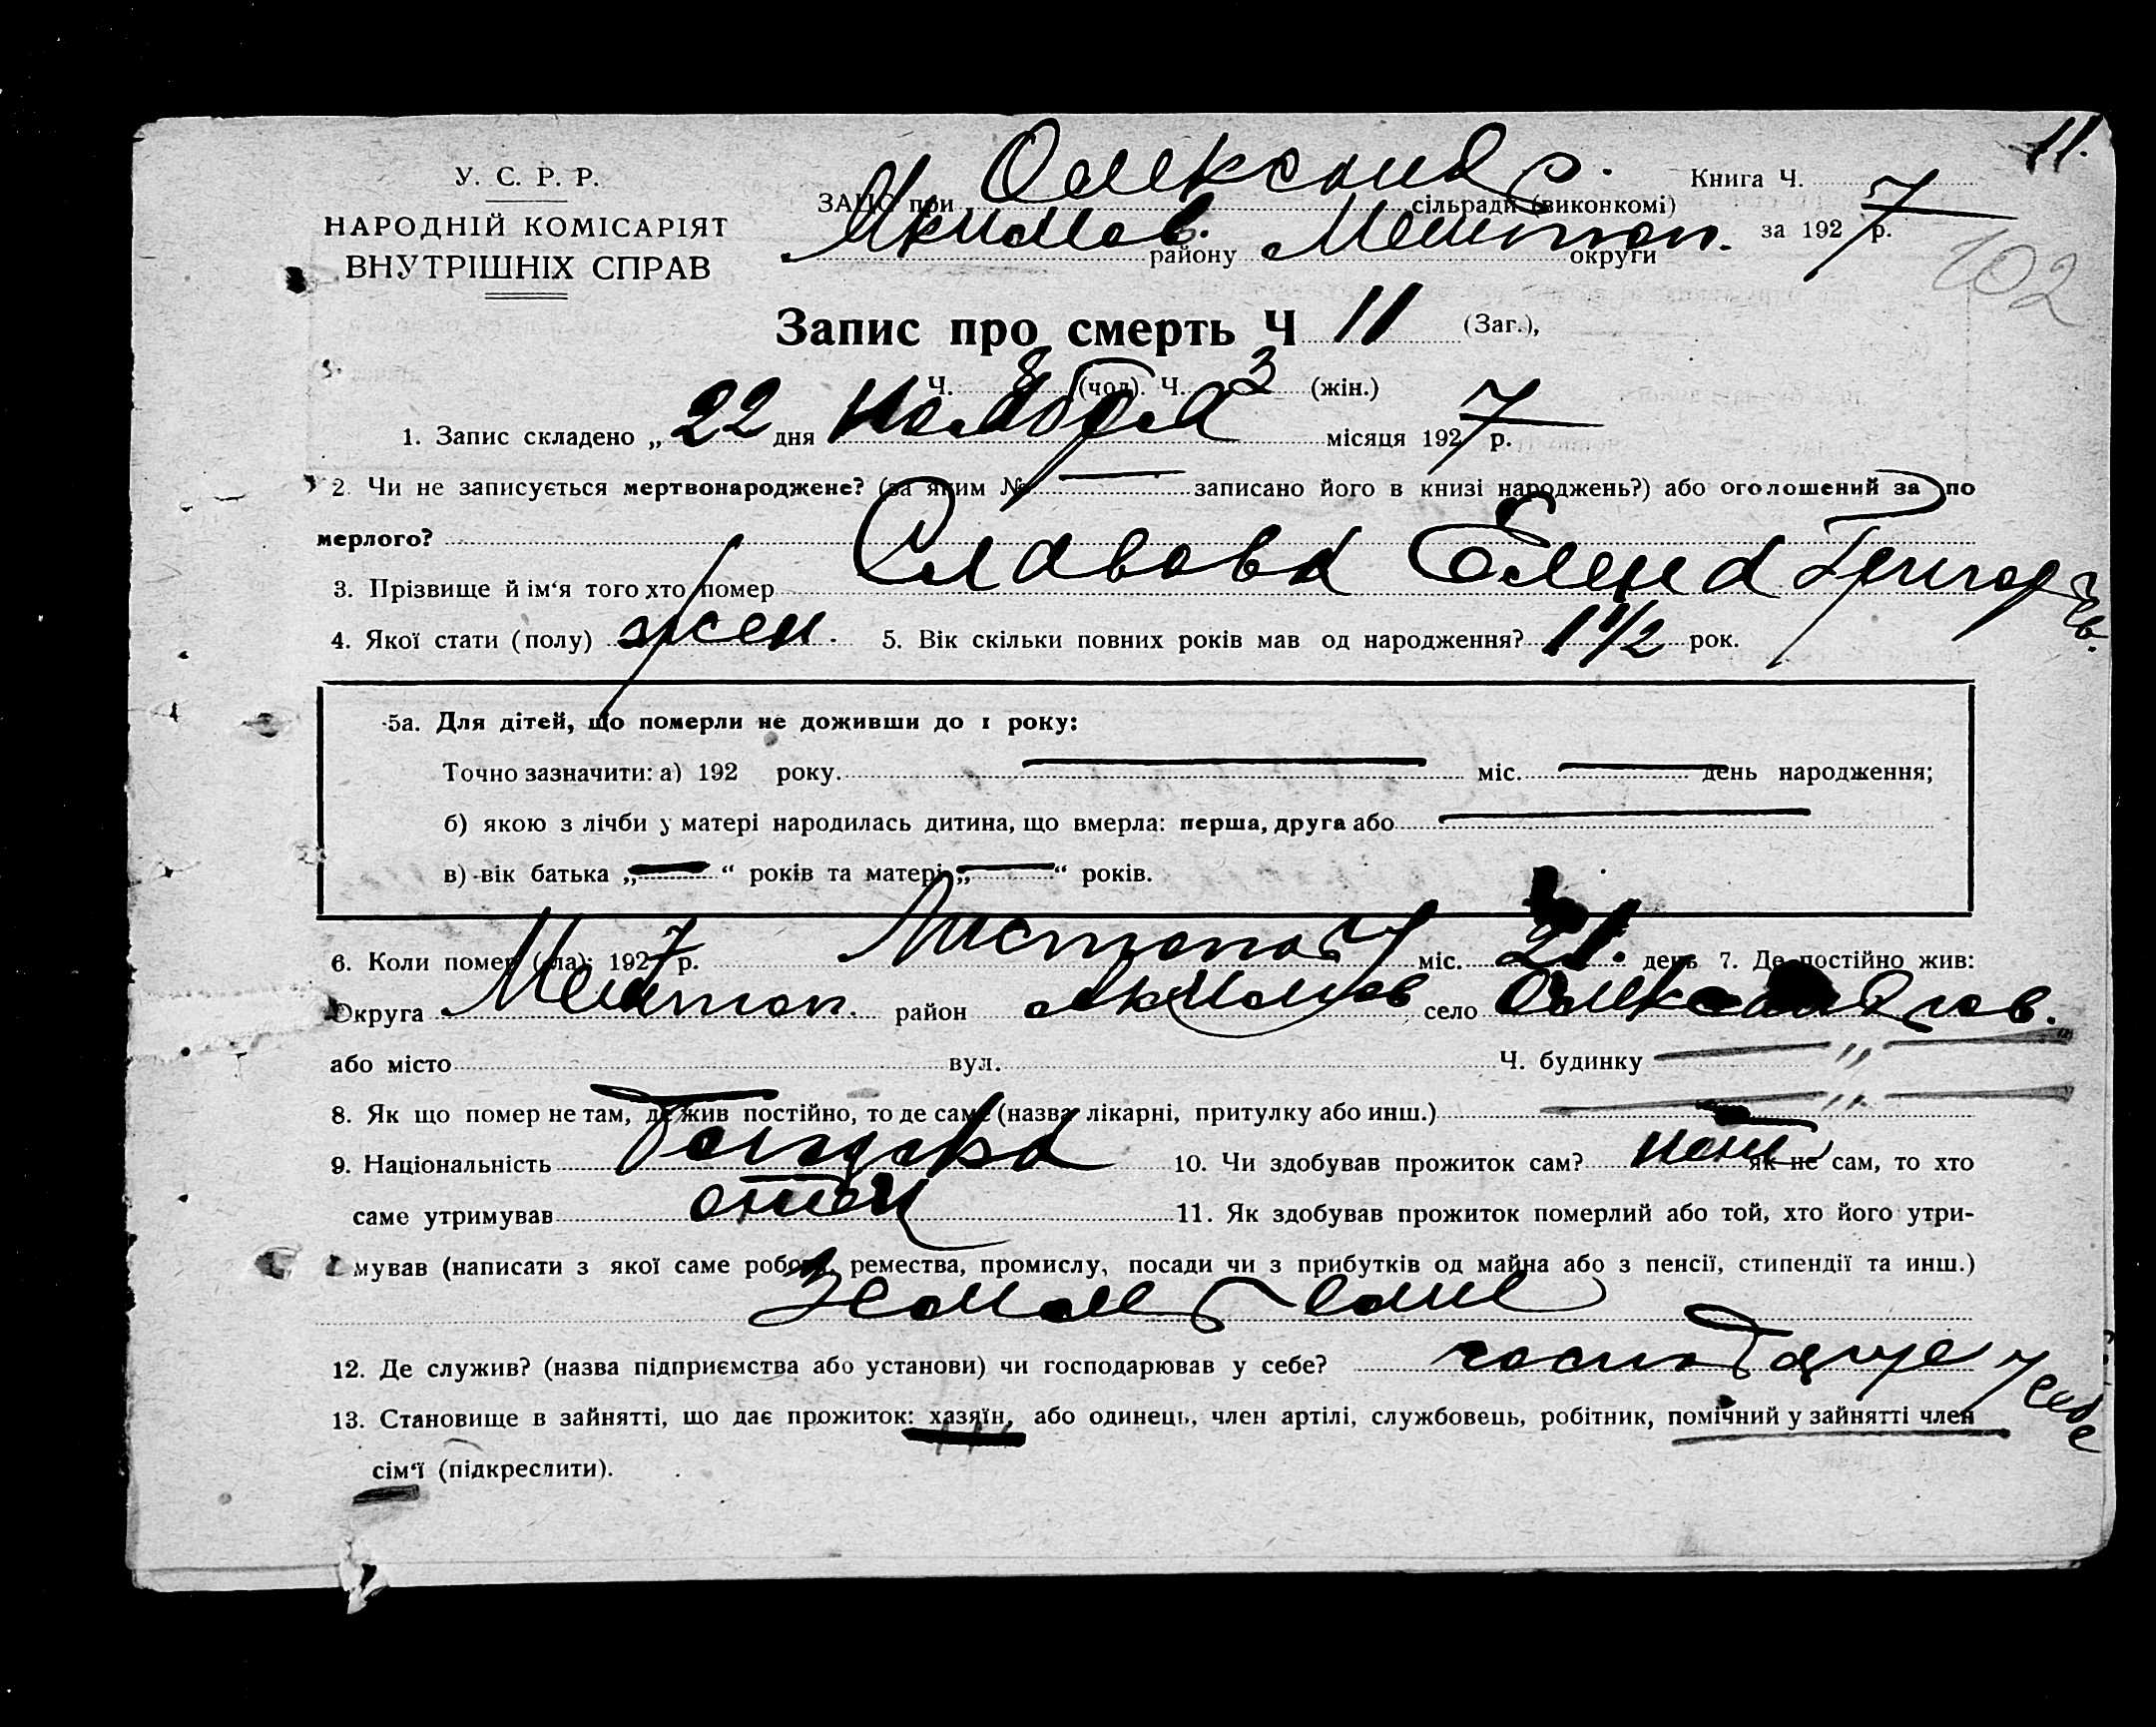 11.
У. С. Р. Р.
НАРОДНІЙ КОМІСАРІЯТ
ВНУТРІШНІХ СПРАВ
ЗАГС при Олександр. сільради (виконкомі)
Книга Ч.
Якимов. району Мелитоп. округи
за 1927 р.
102
Запис про смерть Ч 11 (Заг.),
Ч. 8 (чол). Ч. 3 (жін.)
1. Запис складено „ 22 дня Ноября місяця 1927 р.
2. Чи не записується мертвонароджене? (за яким № — записано його в книзі народжень?) або оголошений за по
мерлого?
3. Прізвище й ім‘я того хто помер Славова Елена Григорьев.
4. Якої стати (полу) жен. 5. Вік скільки повних років мав од народження? 1 1/2 рок.
5а. Для дітей, що померли не доживши до 1 року:
Точно зазначити: а) 192 року. — міс. — день народження;
б) якою з лічби у матері народилась дитина, що вмерла: перша, друга або —
в) вік батька „ — “ років та матері „ — “ років.
6. Коли помер (ла): 1927 р. Листопад міс. 21. день 7. Де постійно жив:
Округа Мелитоп. район Якимов село Олександров.
або місто вул. Ч. будинку — „ —
8. Як що помер не там, де жив постійно, то де саме (назва лікарні, притулку або инш.) — „ —
9. Національність Болгарка 10. Чи здобував прожиток сам? як не сам, то хто
саме утримував отец 11. Як здобував прожиток померлий або той, хто його утри-
мував (написати з якої саме роботи, ремества, промислу, посади чи з прибутків од майна або з пенсії, стипендії та инш.)
12. Де служив? (назва підприємства або установи) чи господарював у себе? господарує у себе
13. Становище в зайнятті, що дає прожиток: хазяїн, або одинець, член артілі, службовець, робітник, помічний у зайнятті член
сім‘ї (підкреслити).